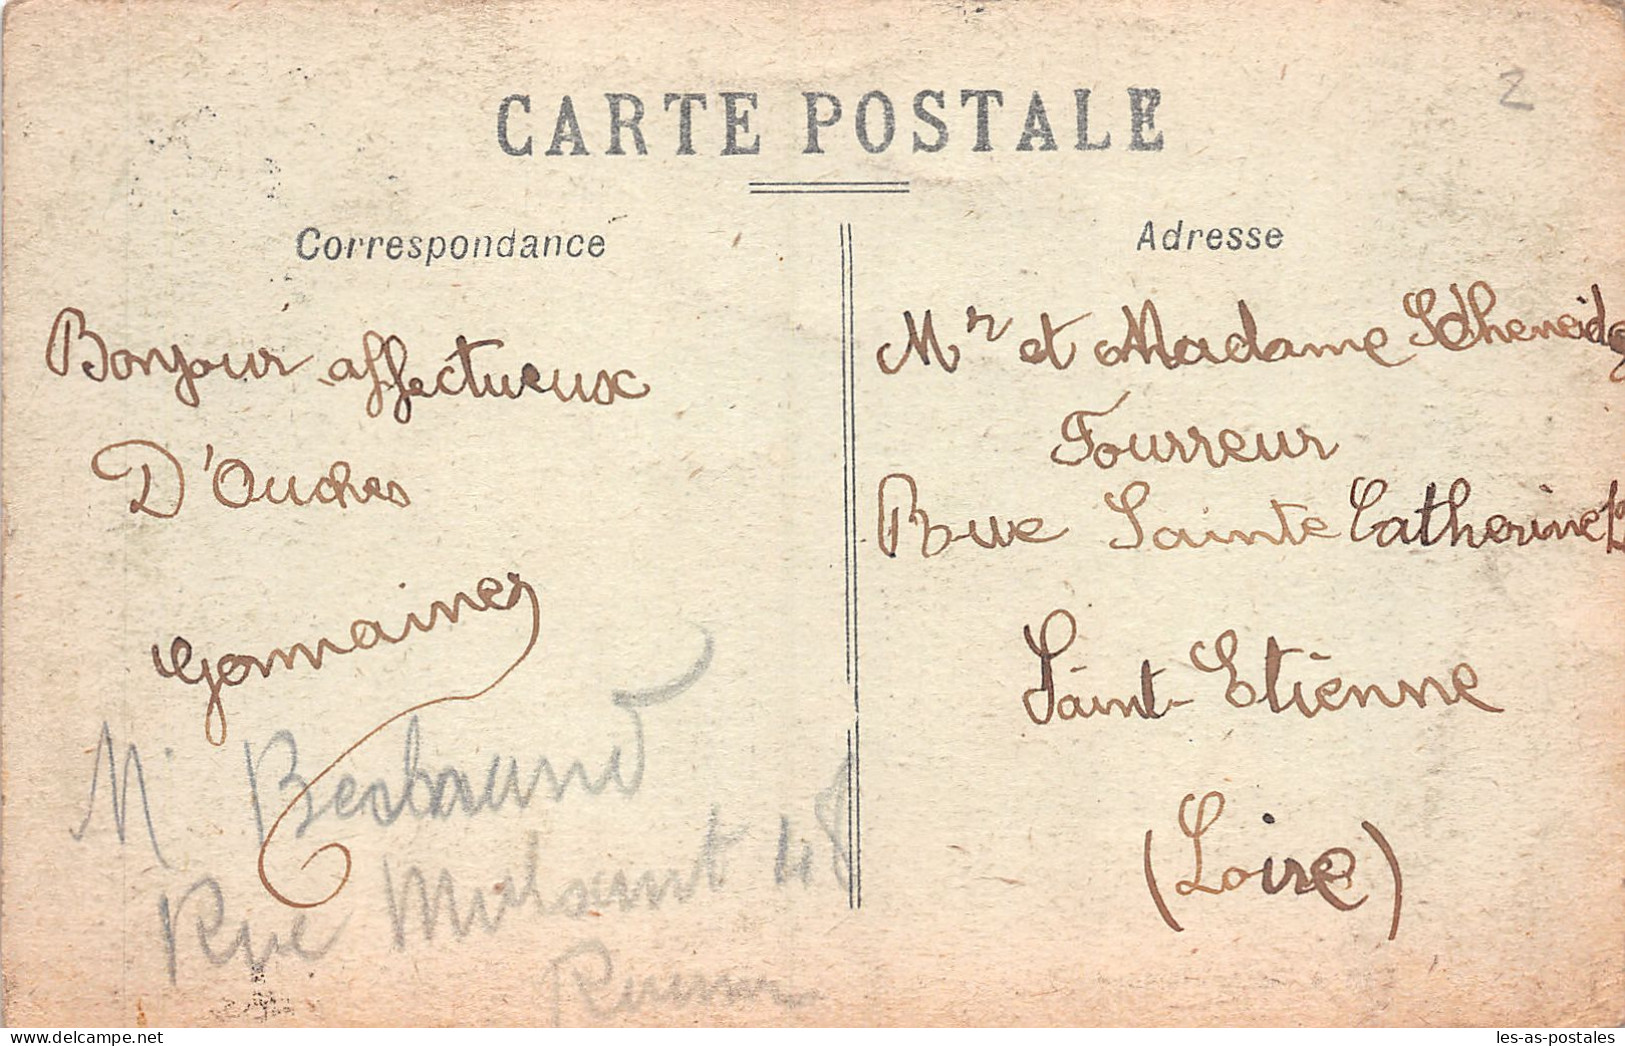 CARTE POSTALE
2
Correspondance
Bonjour affectueux
D'Ouches
Germaine
Mr Bertrand
Rue Mulsant 48
Adresse
Mr et Madame Scheneider
Fourreur
Rue Sainte Catherine
Saint-Etienne
(Loire)
les-as-postales